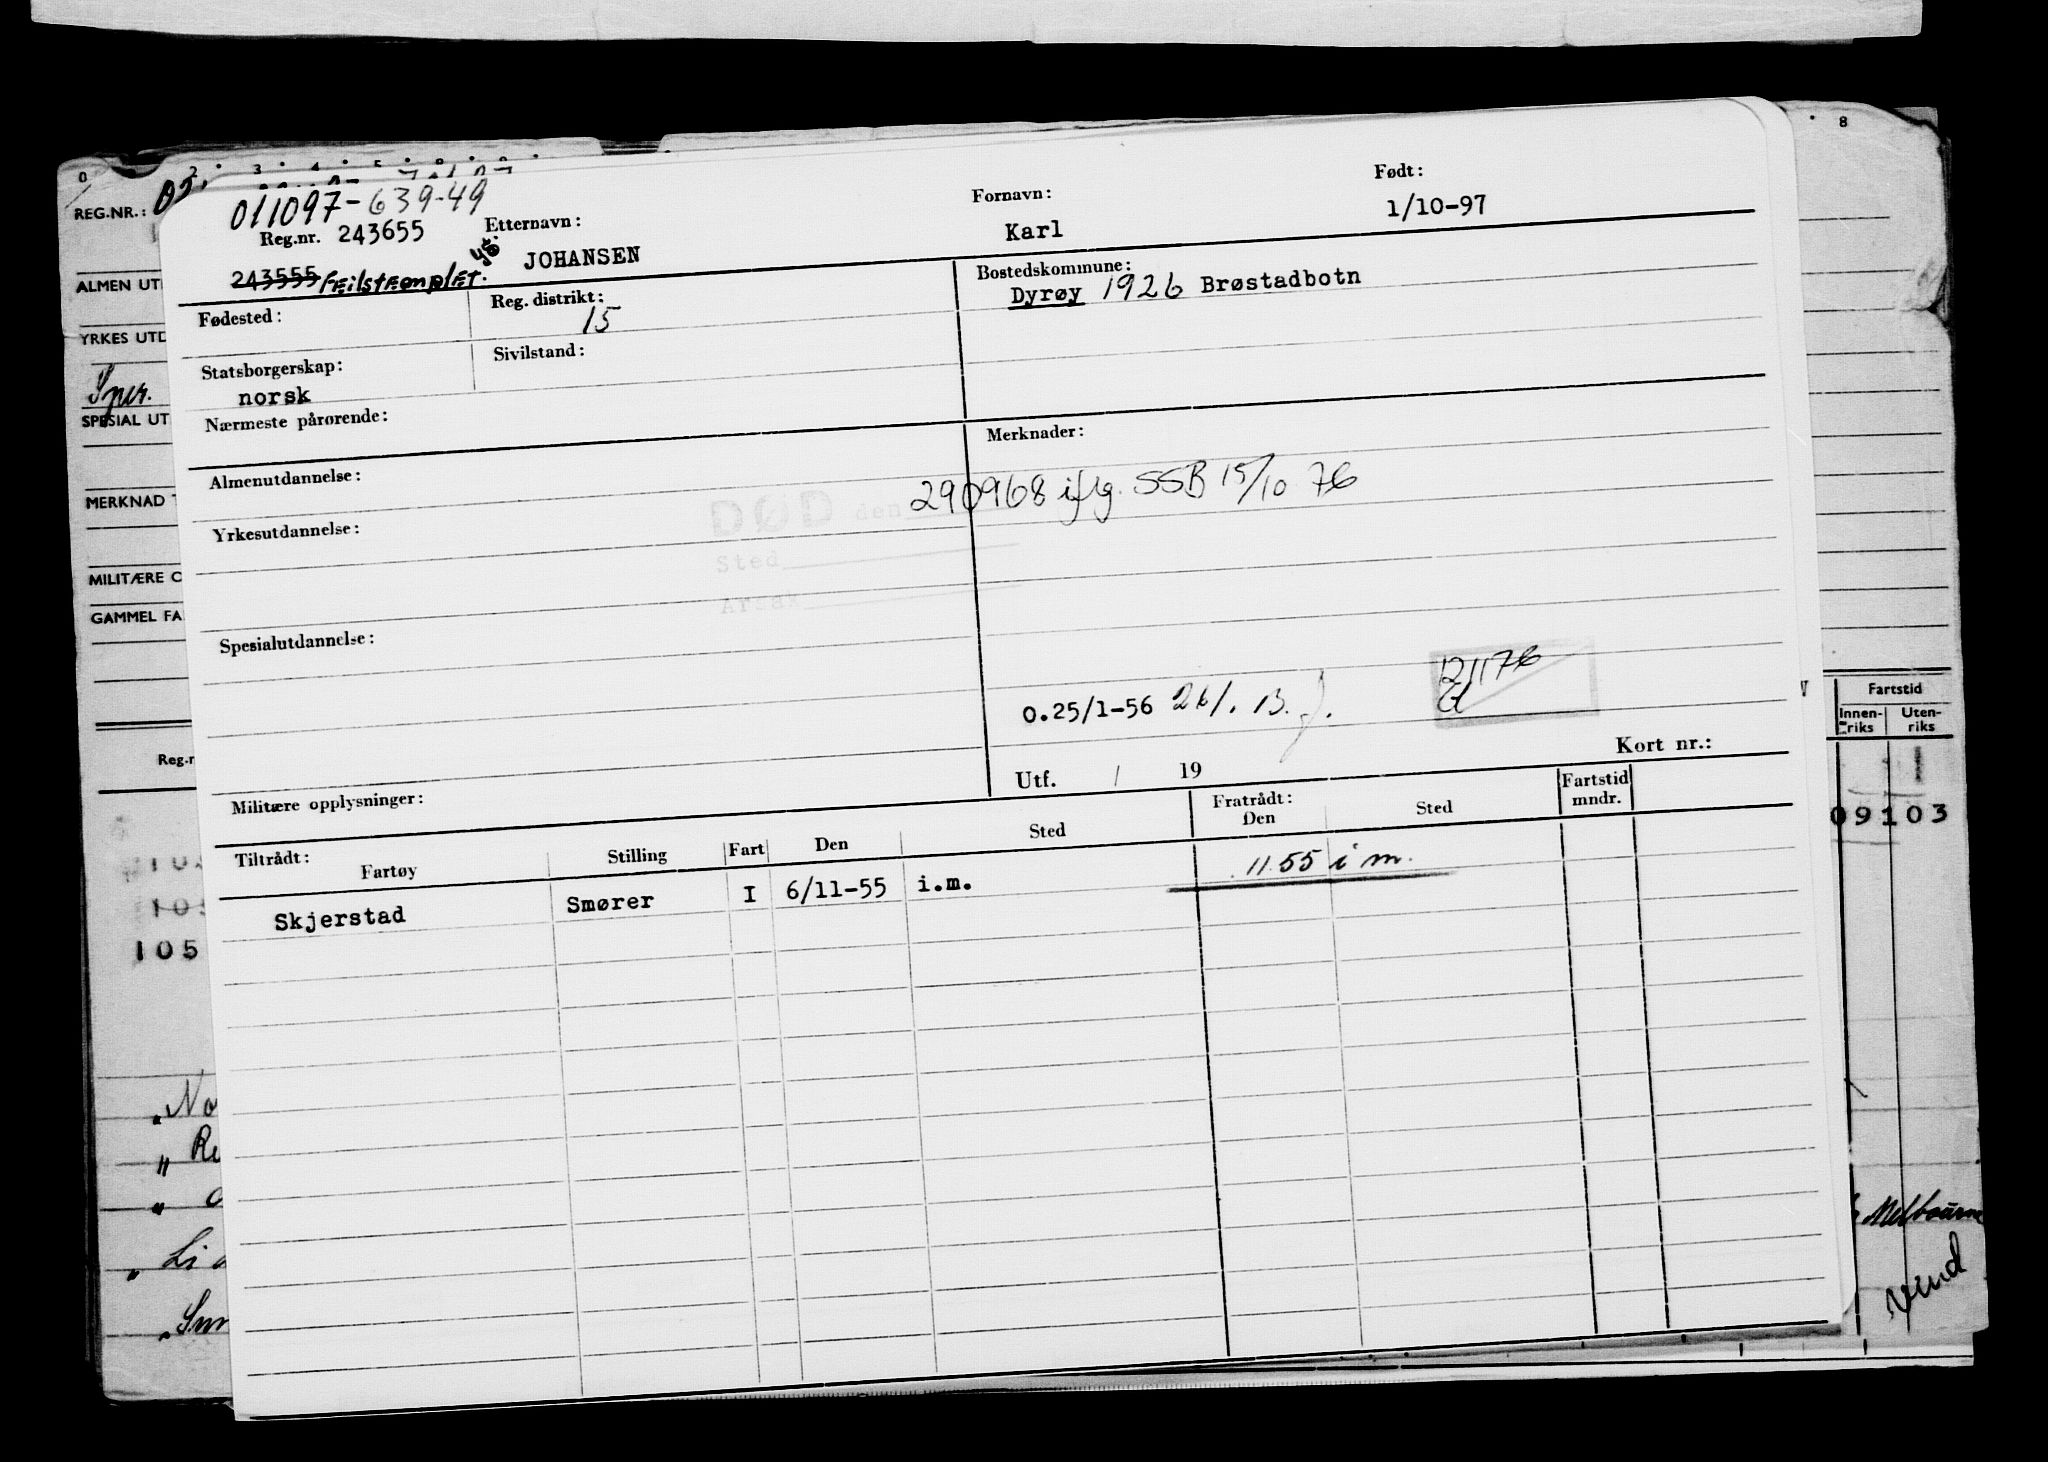 0 2 3 4 5 8
REG.NR.:
ALMEN UT
YRKES UTD
Sper.
SPESIAL UT
MERKNAD
MILITÆRE O
GAMMEL FA
Reg.n
105
105
No
Re
Li
Sm
011097-639-49
Reg.nr. 243655
243555 Feilstemplet.
Etternavn:
JOHANSEN
Fornavn:
Karl
Født:
1/10-97
Fødested:
Reg. distrikt:
15
Bostedskommune:
Dyrøy 1926 Brøstadbotn
Statsborgerskap:
norsk
Sivilstand:
Nærmeste pårørende:
Almenutdannelse:
Merknader:
DØD den 290968 iflg. SSB 15/10 76
Sted
Årsak
Yrkesutdannelse:
Spesialutdannelse:
12/1176
0.25/1-56 26/1. B.
Utf. / 19
Kort nr.:
Militære opplysninger:
Tiltrådt:
Fartøy Stilling Fart Den Sted
Fratrådt:
Den Sted
Fartstid
mndr.
Skjerstad Smører I 6/11-55 i.m. 11.55 i m.
8
Fartstid
Innen-
riks
Uten-
riks
09103
Melbourne
vend